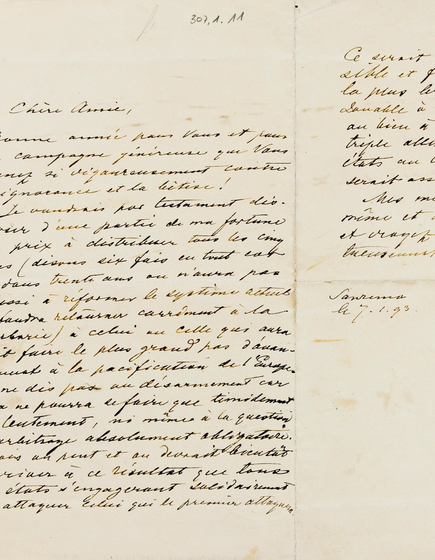 307, A. 11
Chère Amie,
bonne année pour Vous et pour
campagne généreuse que Vous
si vigoureusement contre
ignorance et la bêtise!
Je voudrais par testament dis-
d'une partie de ma fortune
prix à distribuer tous les cinq
(disons six fois en tout car
dans trente ans on n'aura pas
à réformer le système actuel
faudra retourner carrément à la
à celui ou celle qui aura
fait faire le plus grand pas d'avan-
à la pacification de l'Europe
ne dis pas au désarmement car
ne pourra se faire que timidement
lentement, ni même à la question
arbitrage absolument obligatoire.
on peut et on devrait bientôt
à ce résultat que tous
états s'engagerant solidairement
attaquer celui qui le premier attaquera
Ce serait
sible et f
la plus le
Douable à
au bien à
triple alli
états au l
serait ass
Mes me
même et
et croyez
tueusement
Sanremo
le 7. 1. 93.